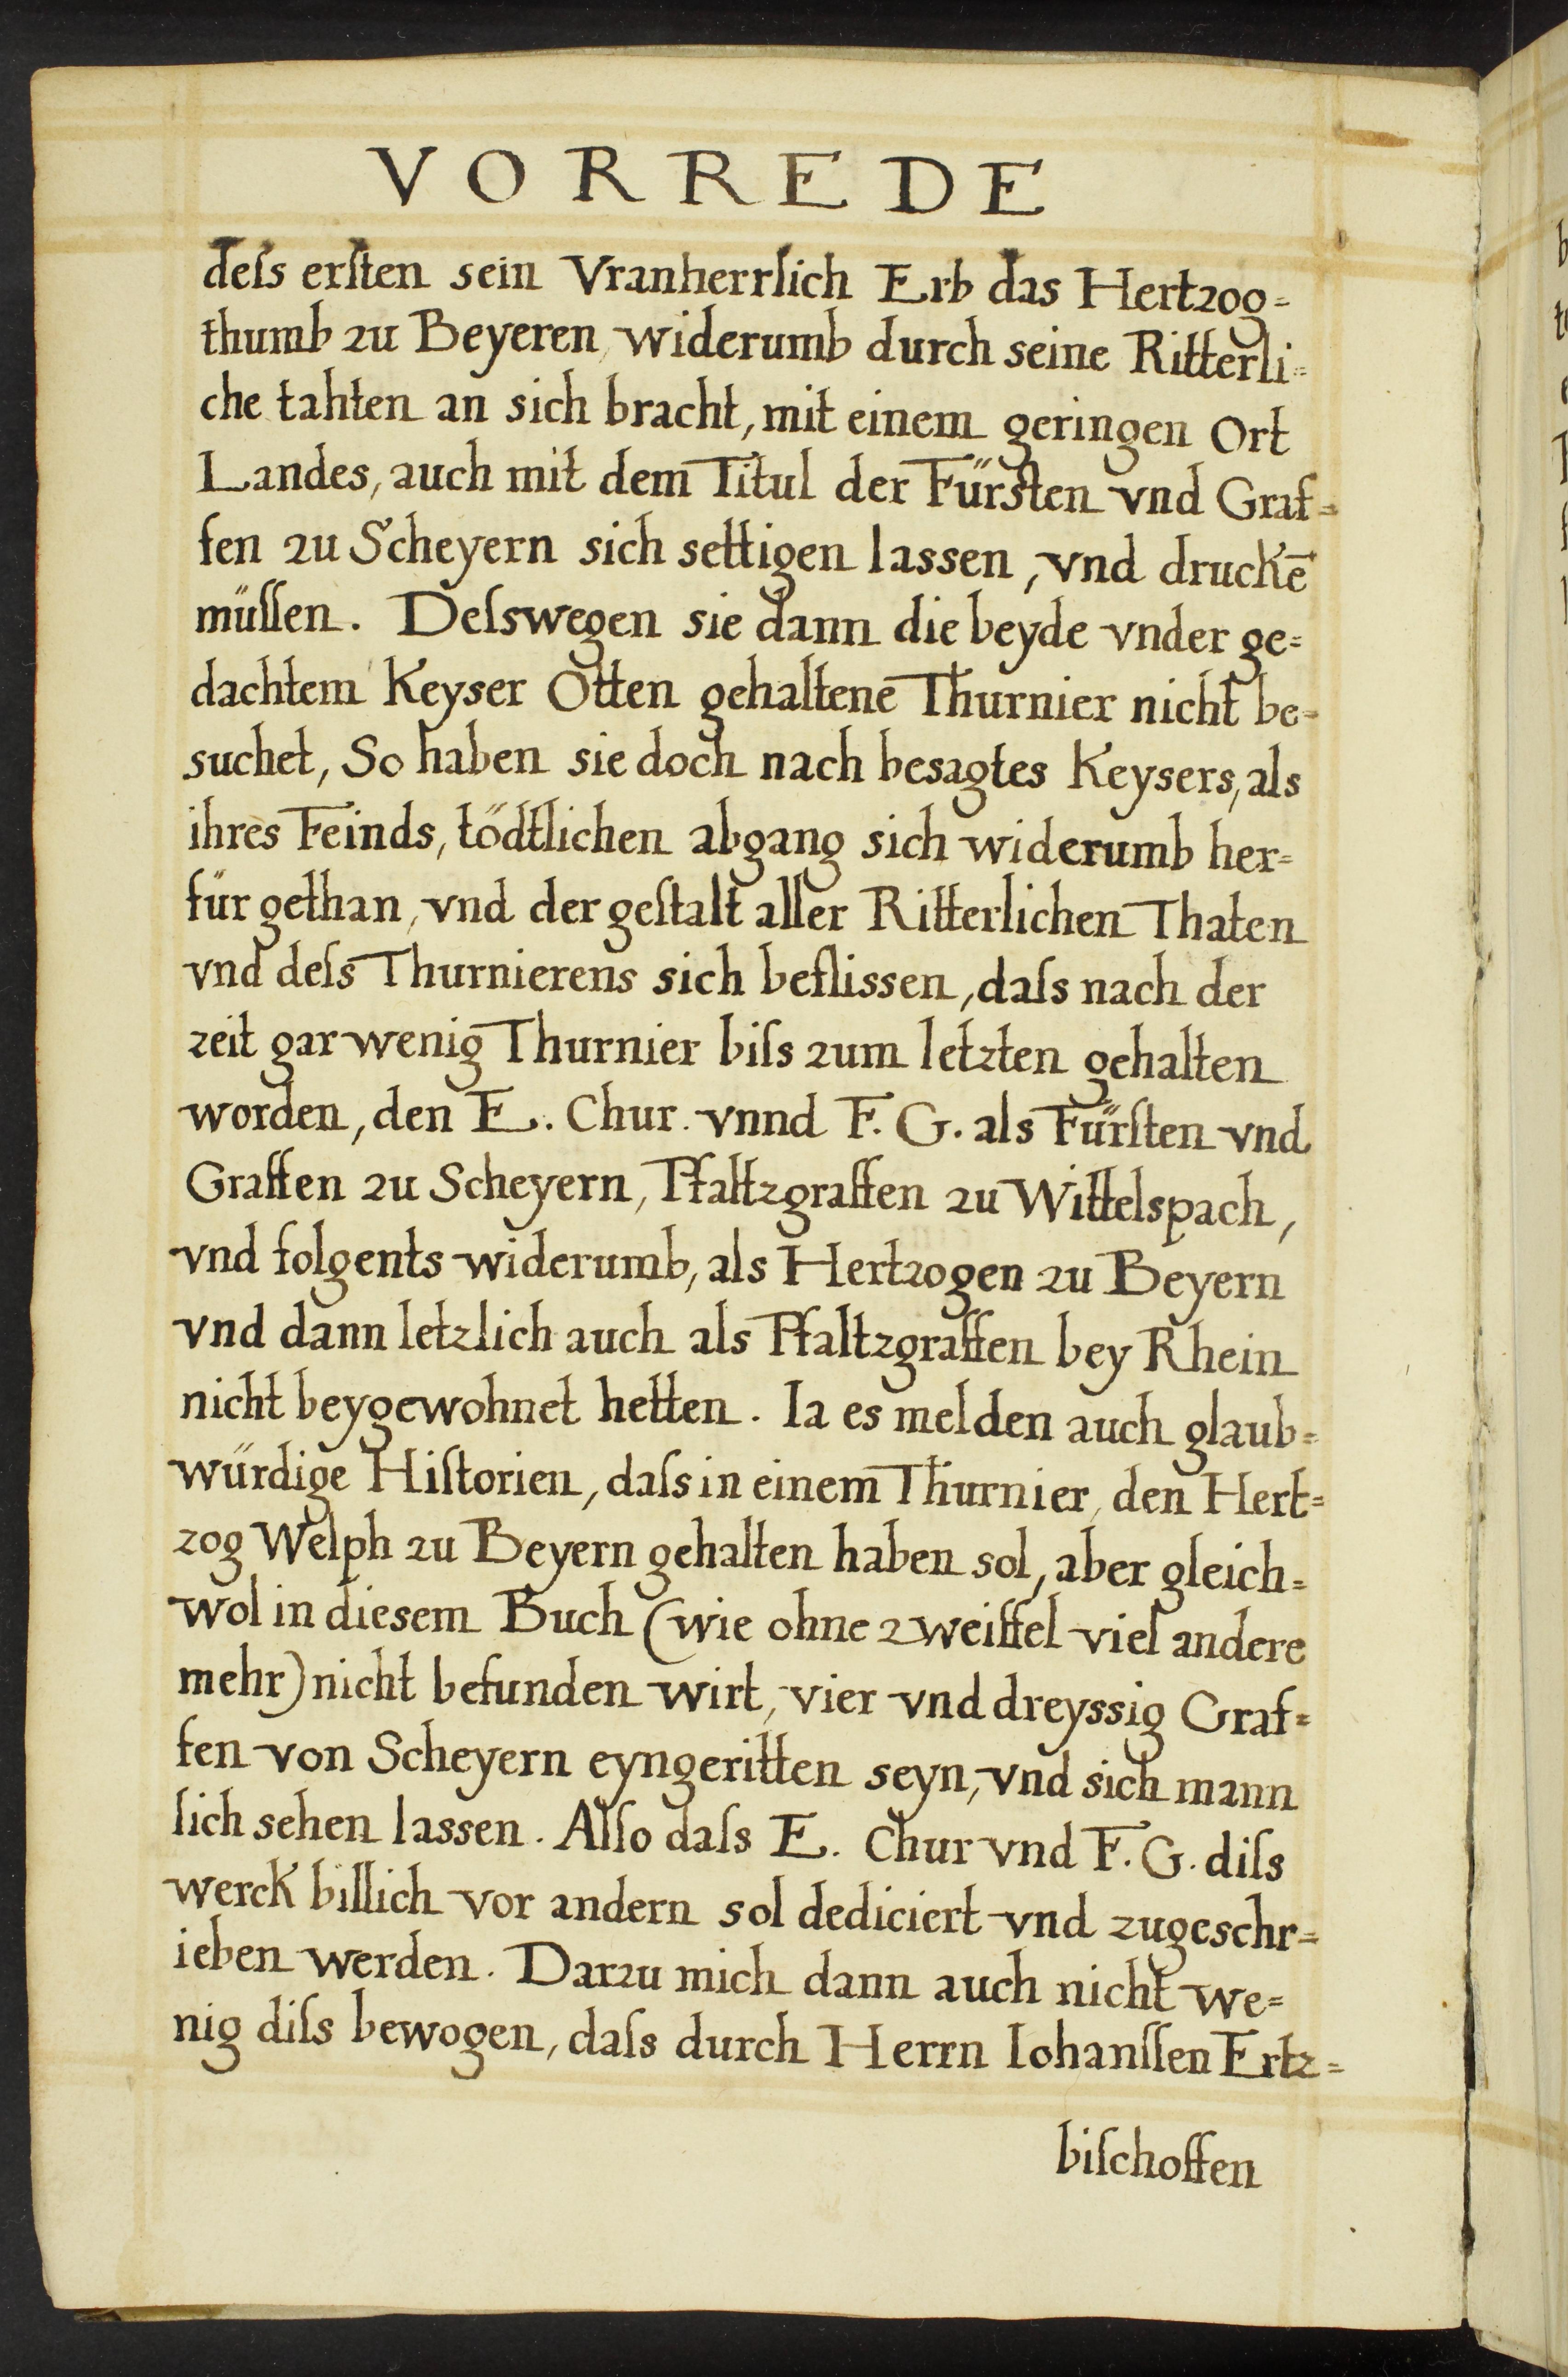 VORREDE
deſs erſten sein Vranherrlich Erb das Hertzog=
thumb zu Beyeren, widerumb durch seine Ritterli=
che tahten an sich bracht, mit einem geringen Ort
Landes, auch mit dem Titul der Fürſten vnd Graf=
fen zu Scheyern sich settigen lassen, vnd druckē
müſſen. Deſswegen sie dann die beyde vnder ge=
dachtem Keyser Otten gehaltene Thurnier nicht be=
suchet, So haben sie doch nach besagtes Keysers, als
ihres Feinds, tödtlichen abgang sich widerumb her=
für gethan, vnd der geſtalt aller Ritterlichen Thaten
vnd deſs Thurnierens sich beflissen, daſs nach der
zeit gar wenig Thurnier biſs zum letzten gehalten
worden, den E. Chur. vnnd F. G. als Fürſten vnd
Graffen zu Scheyern, Pfaltzgraffen zu Wittelspach,
vnd folgents widerumb, als Hertzogen zu Beyern
vnd dann letzlich auch als Pfaltzgraffen bey Rhein
nicht beygewohnet hetten. Ia es melden auch glaub=
würdige Hiſtorien, daſs in einem Thurnier, den Hert=
zog Welph zu Beyern gehalten haben sol, aber gleich=
wol in diesem Buch (wie ohne zweiffel viel andere
mehr) nicht befunden wirt, vier vnd dreyssig Graf=
fen von Scheyern eyngeritten seyn, vnd sich mann
lich sehen lassen. Alſo daſs E. Chur vnd F. G. diſs
werck billich vor andern sol dediciert vnd zugeschr=
ieben werden. Darzu mich dann auch nicht we=
nig diſs bewogen, daſs durch Herrn Iohanſſen Ertz=
biſchoffen